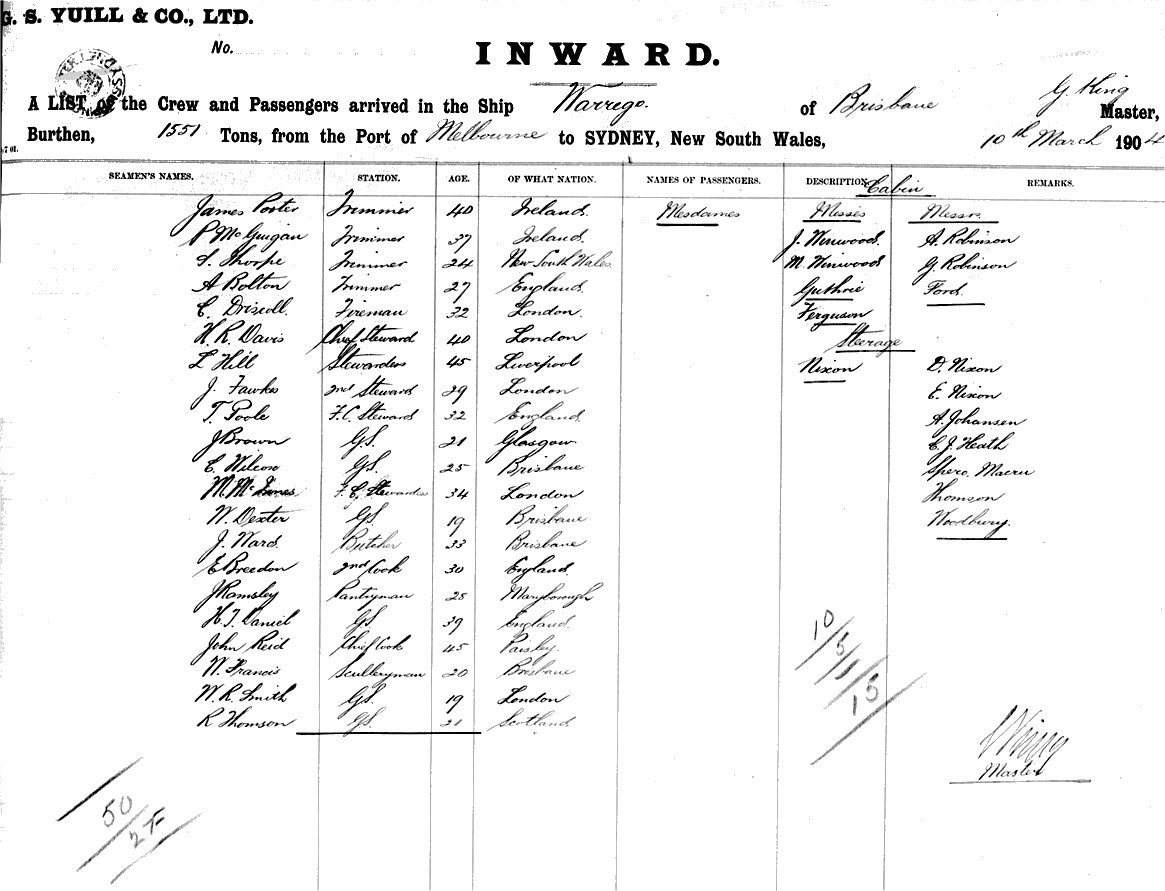 G. S. YUILL & CO., LTD.
No.
INWARD.
A LIST of the Crew and Passengers arrived in the Ship Warrego. of Brisbane G King Master,
Burthen, 1551 Tons, from the Port of Melbourne to SYDNEY, New South Wales, 10th March 1904
SEAMEN'S NAMES. STATION. AGE. OF WHAT NATION. NAMES OF PASSENGERS. DESCRIPTION. Cabin REMARKS.
James Porter Trimmer 40 Ireland. Mesdames Misses Messrs
P McGuigan Trimmer 37 Ireland. J. Winwood. A. Robinson
S. Thorpe Trimmer 24 New South Wales M. Winwood G. Robinson
A Bolton Trimmer 27 England. Guthrie Ford.
C. Driscoll Fireman 32 London. Ferguson
H. R. Davis Chief Steward 40 London Steerage
L Hill Stewardess 45 Liverpool Nixon D. Nixon
J. Fawkes 2nd Steward 29 London E. Nixon
T. Poole F.C. Steward 32 England. A. Johansen
J Brown G.S. 21 Glasgow. C. J. Heath
C. Wilcox GS. 25 Brisbane Spero. Macru
M. McInnes F. C. Stewardess 34 London Thomson
W. Dexter GS. 19 Brisbane Woodbury.
J. Ward Butcher 33 Brisbane
E Breedon 2nd Cook 30 England.
J Ramsley Pantryman 28 Maryborough
H. T. Daniel GS. 39 England.
John Reid Chief Cook 45 Paisley.
W. Francis Sculleryman 20 Brisbane
W. R. Smith GS. 19 London
R Thomson GS. 21 Scotland.
10/5/15
King
Master
50/2